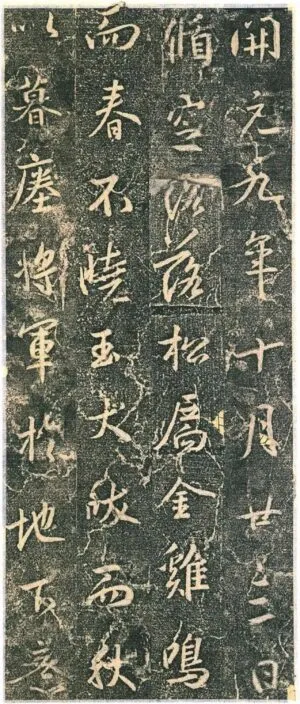 開元九年十月廿三日
空落松扃金雞鳴
而春不曉玉犬吠而秋
以暮瘞將軍於地下意